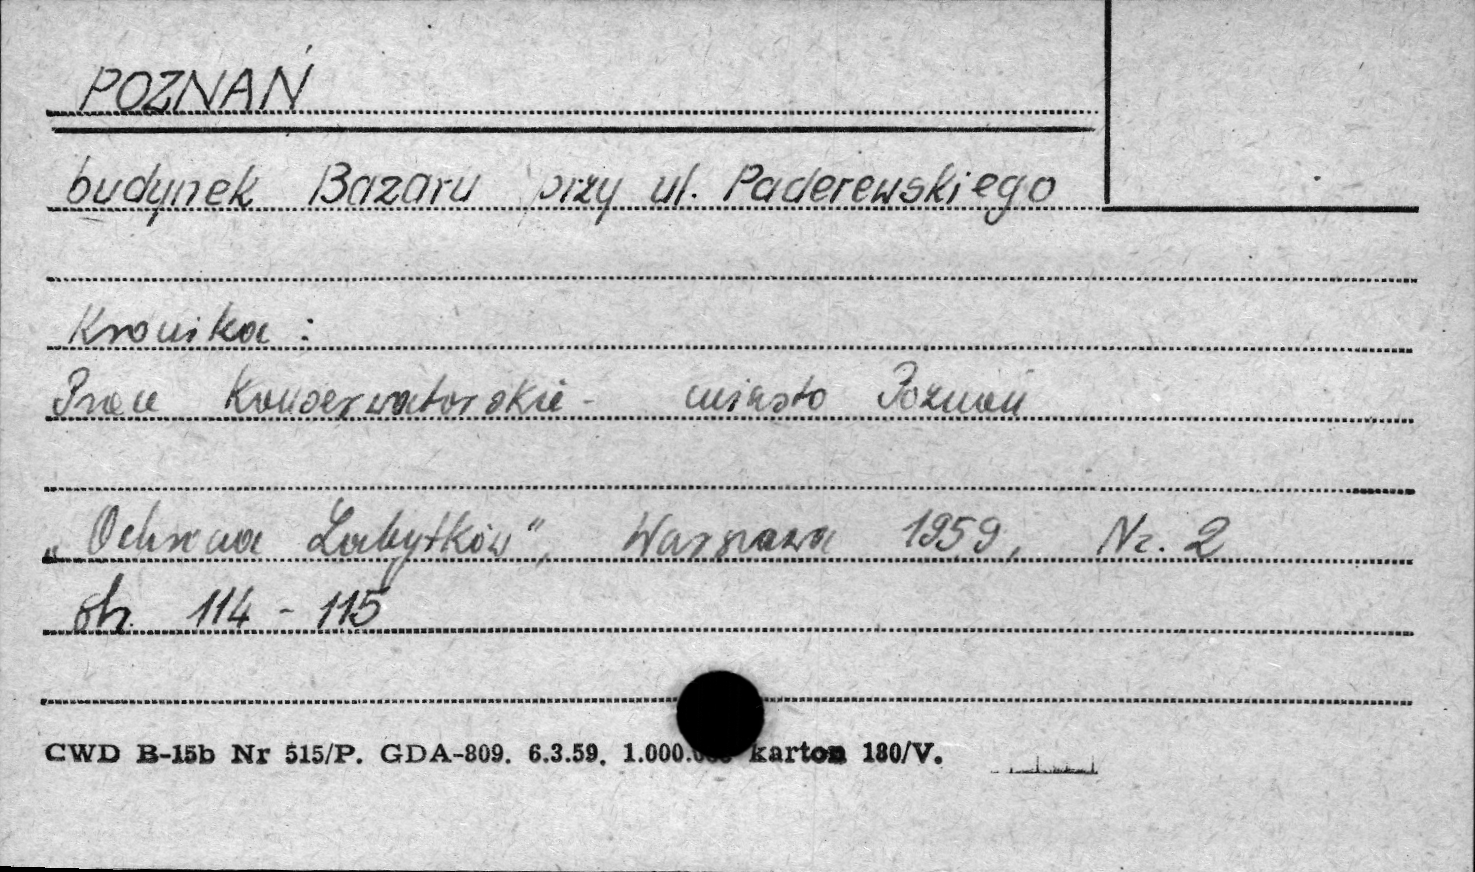 POZNAŃ
budynek Bazaru przy ul. Paderewskiego
Kronika :
Prace Konserwatorskie - miasto Poznań
„Ochrona Zabytków", Warszawa 1959, Nr. 2
str. 114 - 115
CWD B-15b Nr 515/P. GDA-809. 6.3.59. karton 180/V.